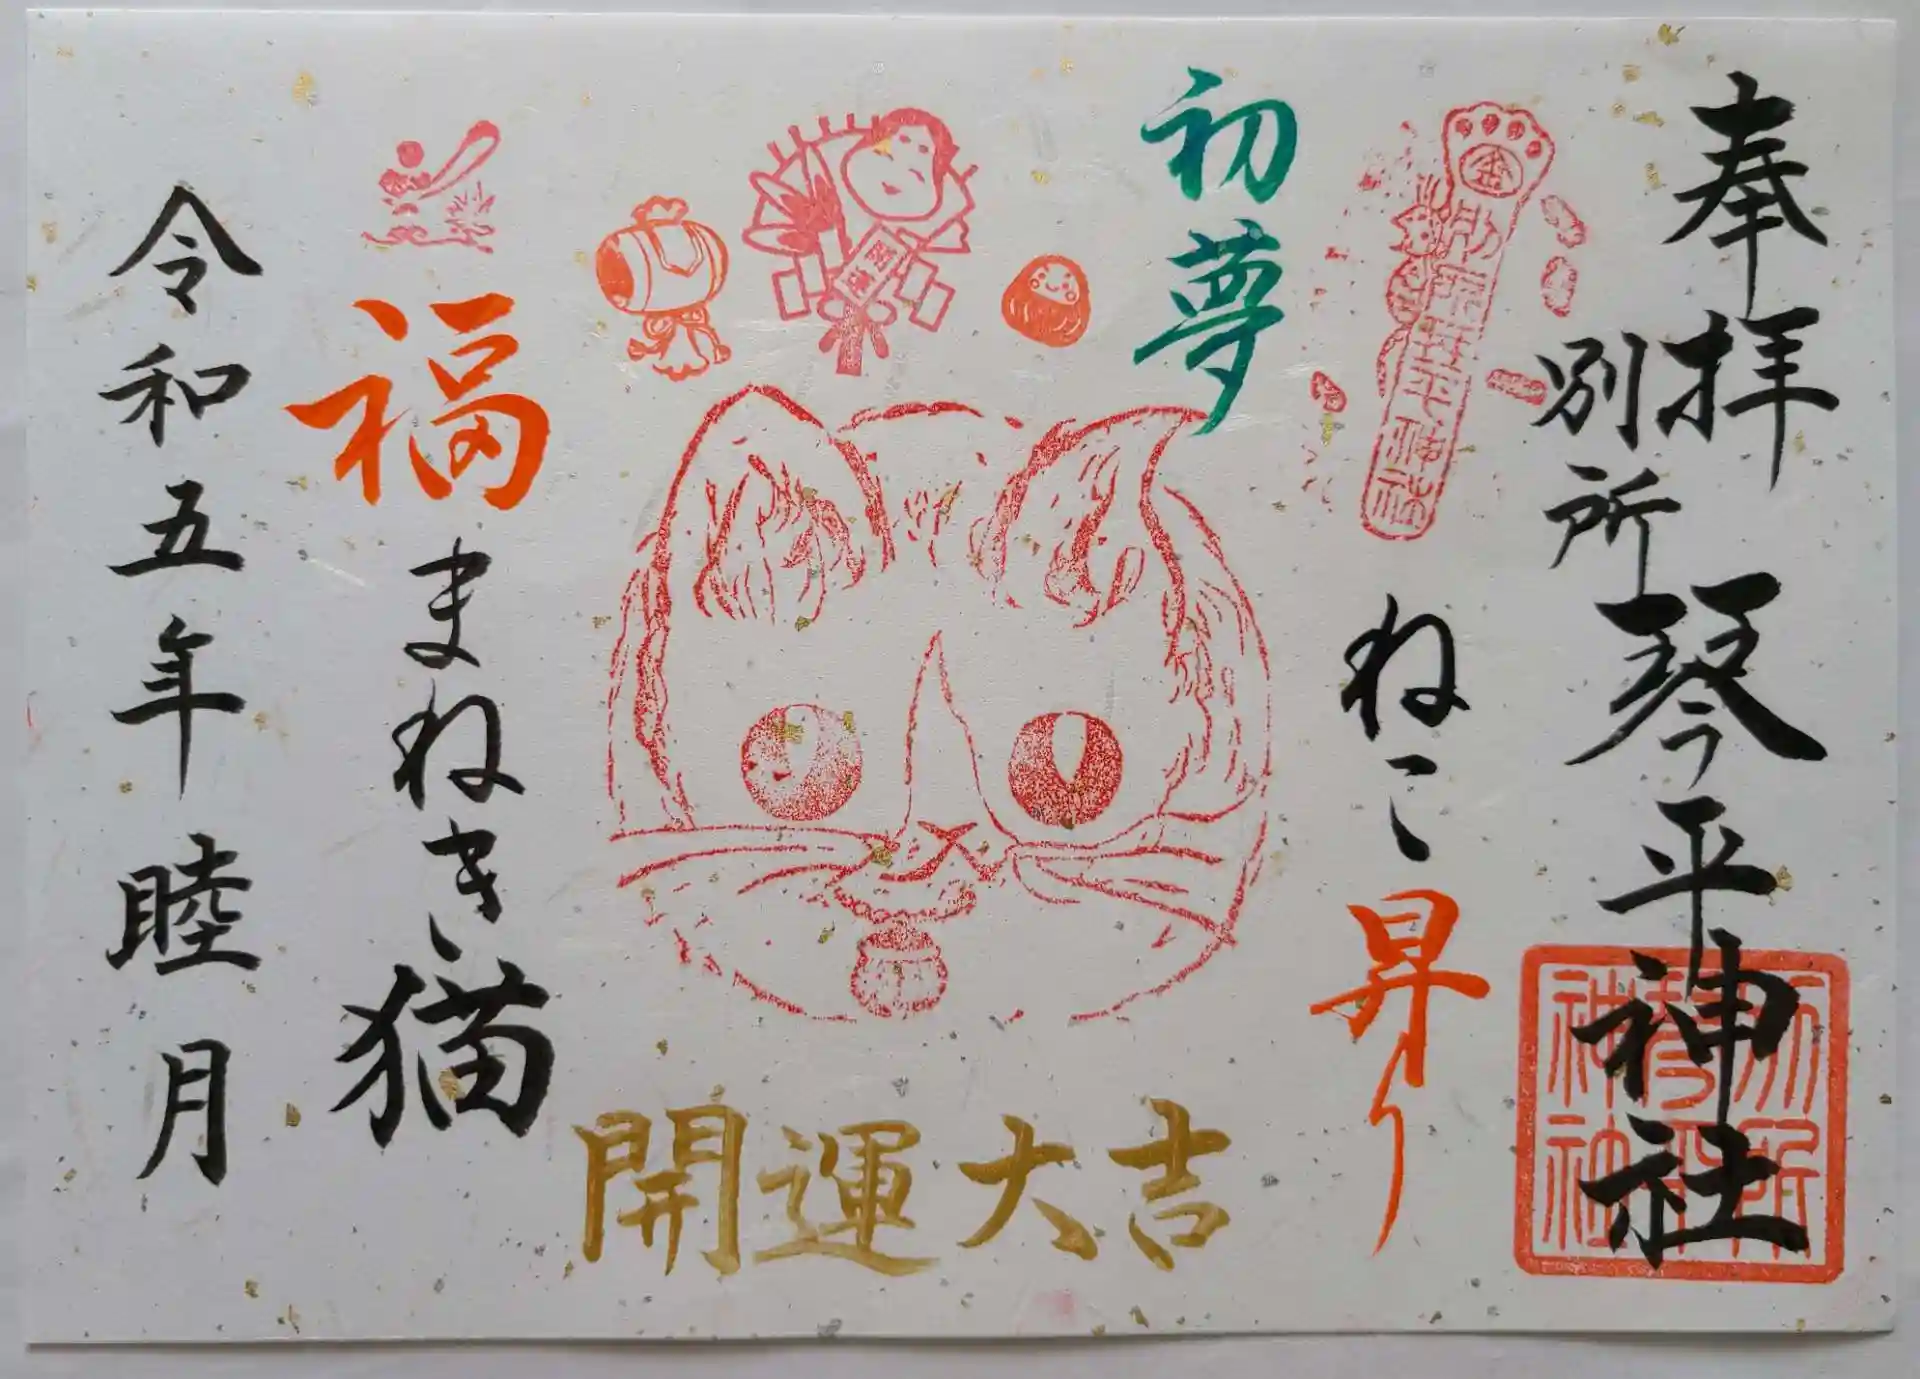 奉拝
別所琴平神社
別所琴平神社
初夢
ねこ昇り
開運大吉
福まねき猫
令和五年睦月